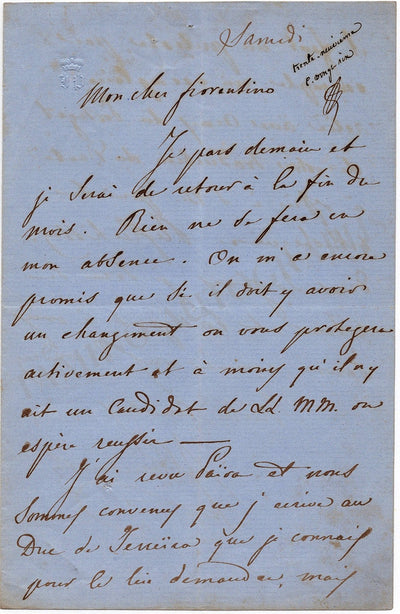 Samedi
trente-neuvième
Mon cher fiorentino
Je pars demain et
je serai de retour à la fin du
mois. Rien ne se fera en
mon absence. On m'a encore
promis que si il doit y avoir
un changement on vous protegera
activement et à moins qu'il n'y
ait un candidat de LL. MM. on
espère reussir —
J'ai revu et nous
sommes convenus que j'écrive au
Duc de que je connais
pour le lui demander, mais